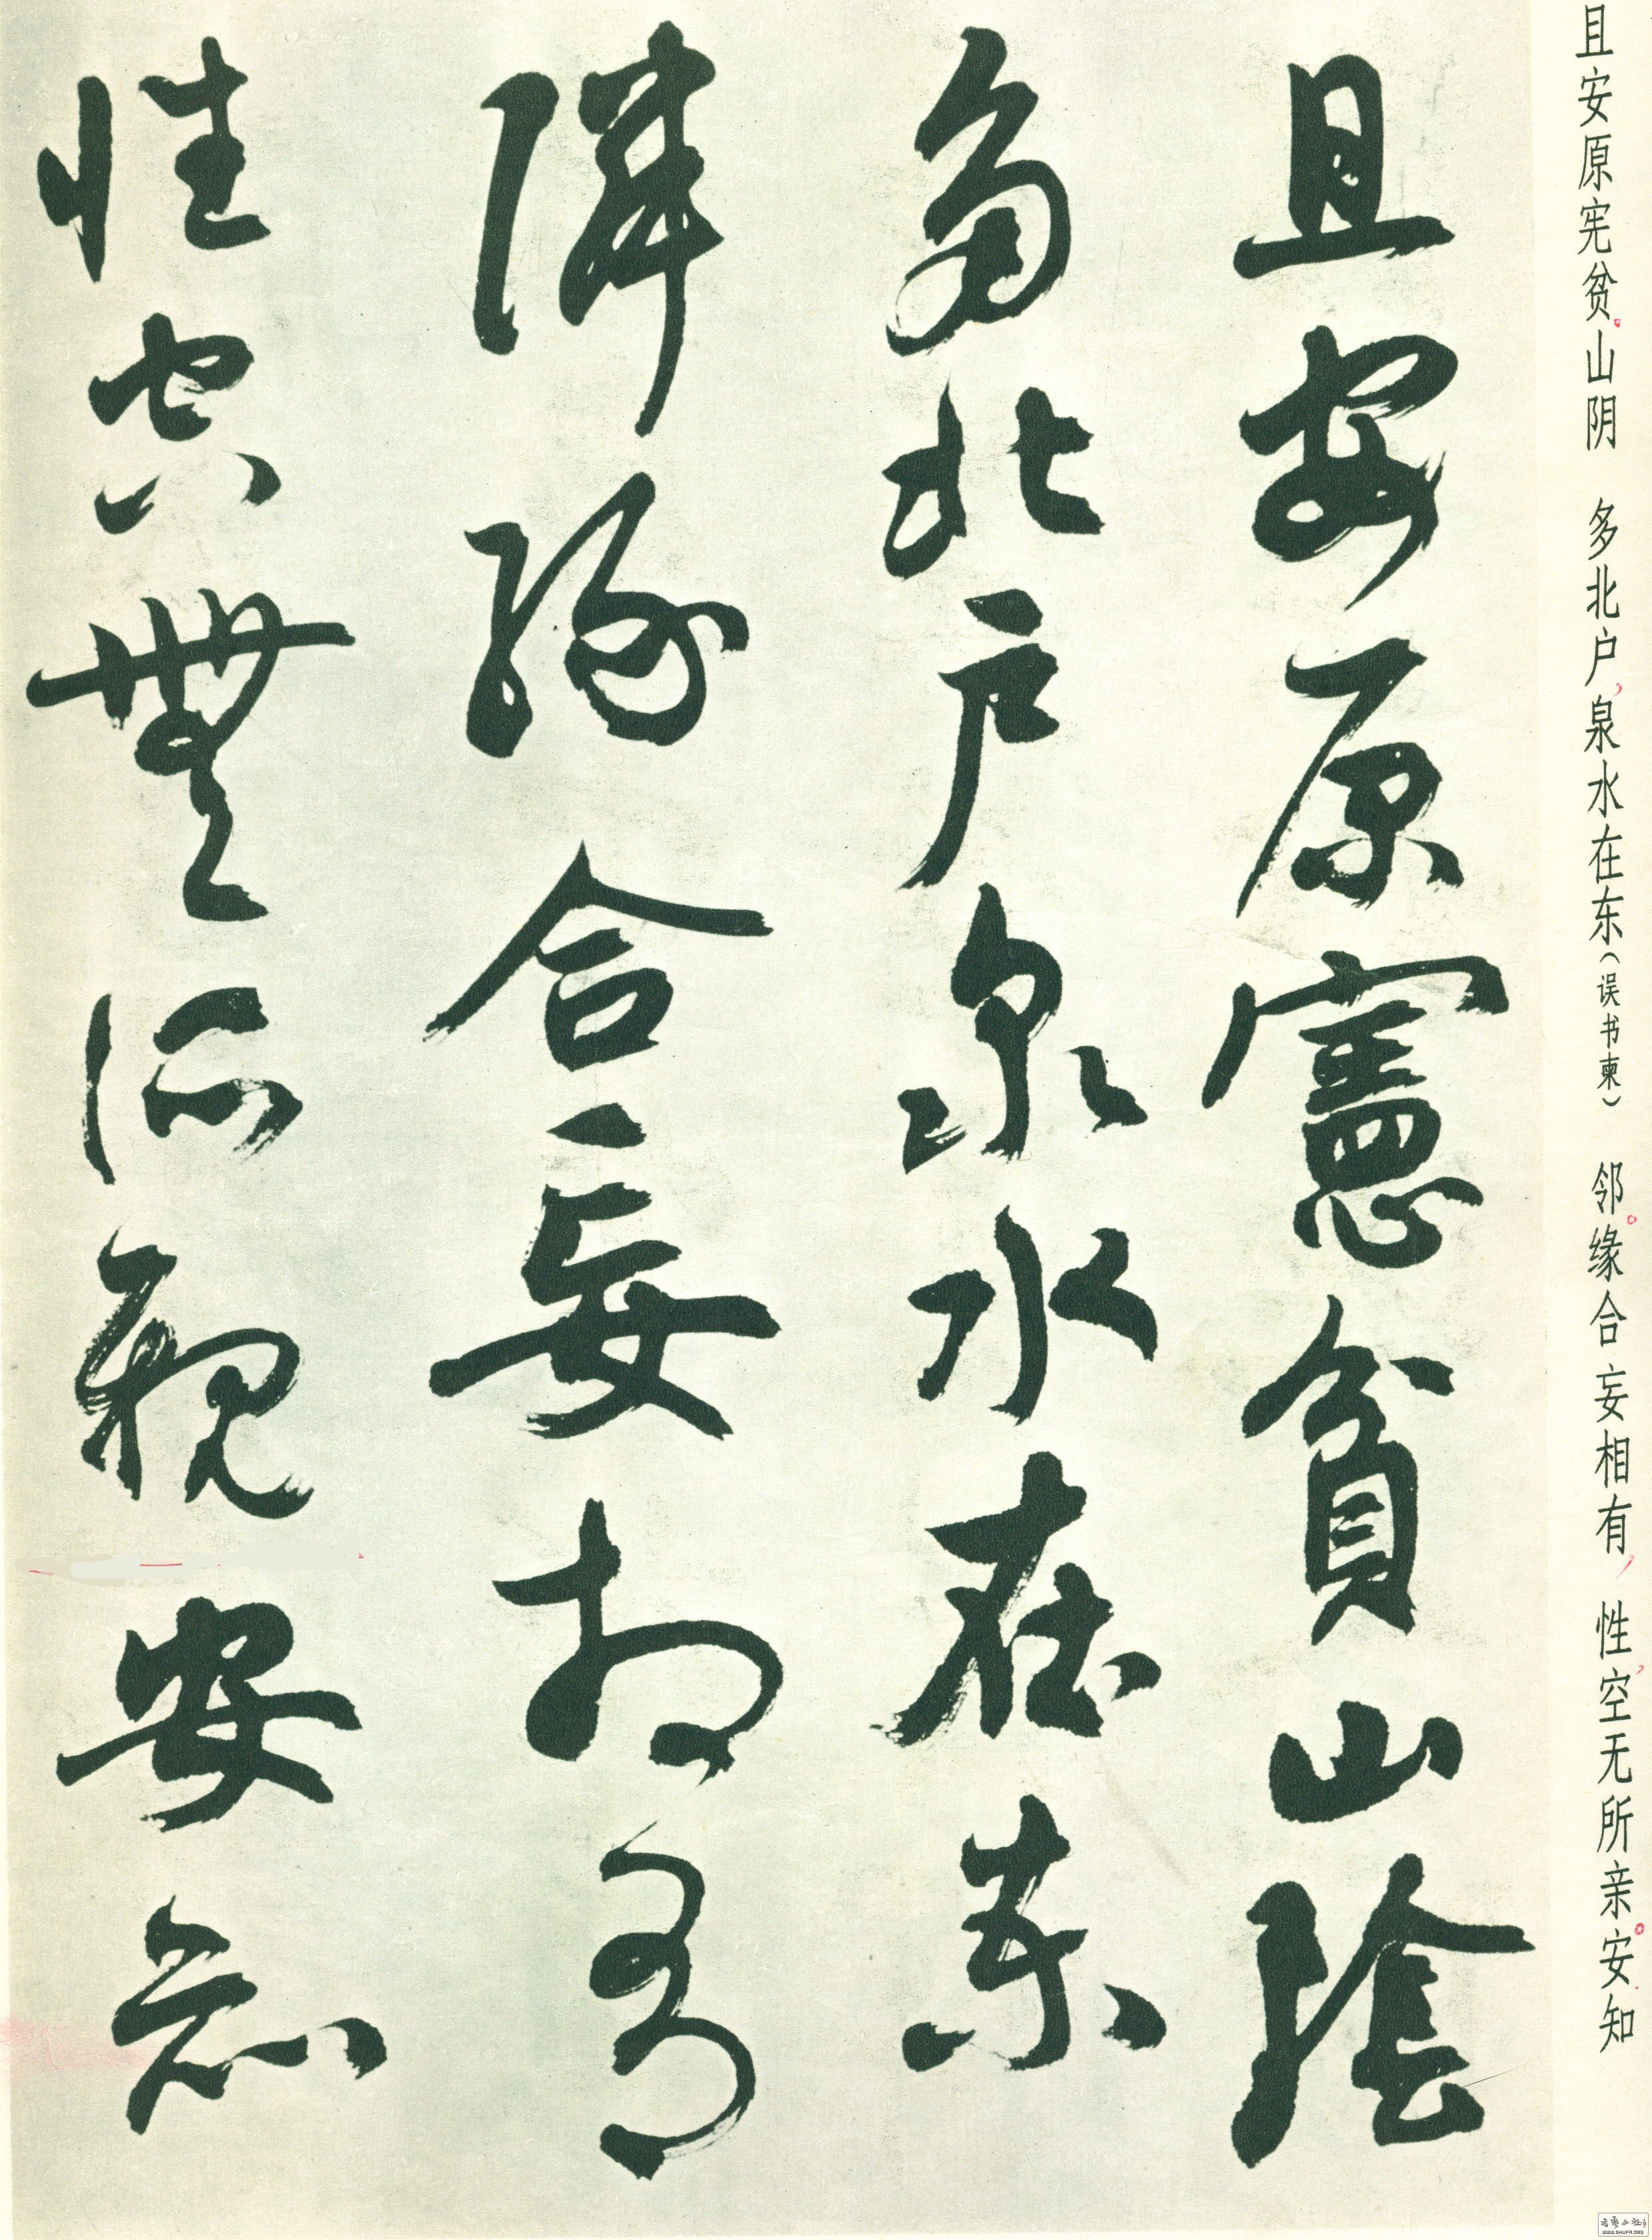 且安原宪贫山阴 多北户泉水在东(误书柬) 邻缘合妄相有 性空无所亲安知
且安原憲貧山陰
多北戶泉水在柬
隣緣合妄相有
性空無所親安知
WWW.SHUFR.ORG